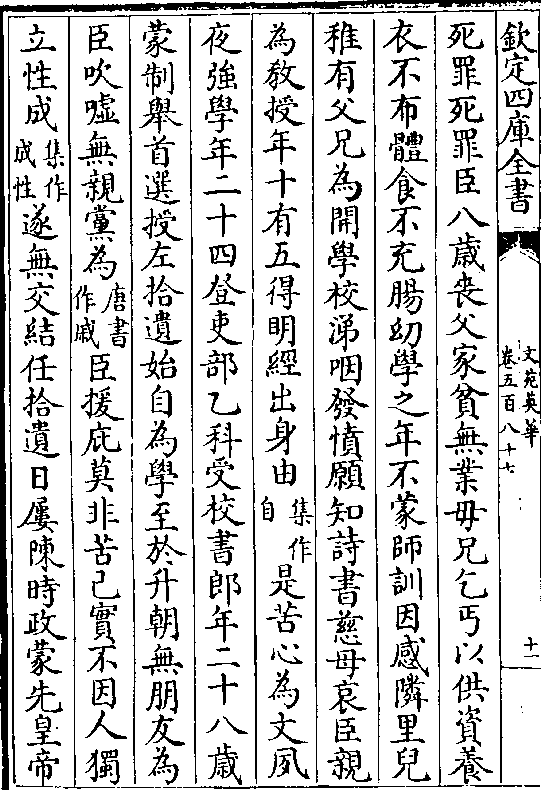 欽定四庫全書
文苑英華
卷五百八十七
十一
死罪死罪臣八歲丧父家貧無業母兄乞丐以供資養
衣不布體食不充腸幼學之年不蒙師訓因感隣里兒
稚有父兄為開學校涕咽發憤願知詩書慈母哀臣親
為教授年十有五得明經出身由集作自是苦心為文夙
夜強學年二十四登吏部乙科受校書郎年二十八歲
蒙制舉首選授左拾遺始自為學至於升朝無朋友為
臣吹噓無親黨為唐書作戚臣援庇莫非苦己實不因人獨
立性成集作成性遂無交結任拾遺日屢陳時政蒙先皇帝